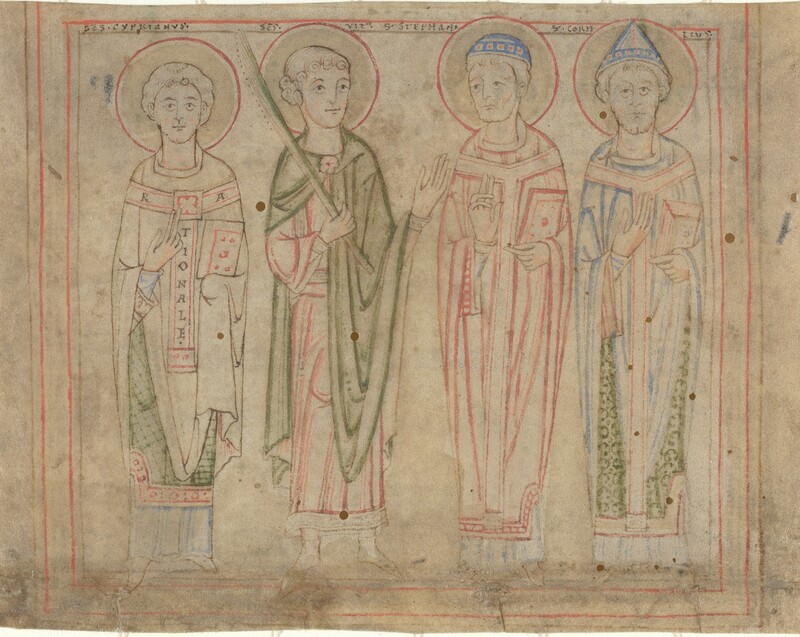 SCS. CYPRIANVS. SCS. VIT⁹. S. STEPHAN⁹. S. CORN LIVS.
R A
TIONALE.